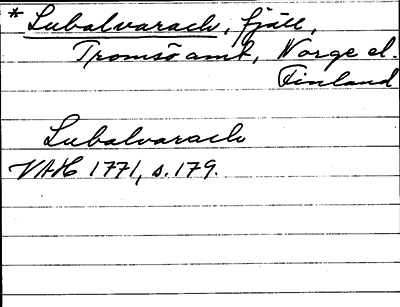 * Lubalvarach, fjäll,
Tromsö amt, Norge el.
Finland
Lubalvarach
VAH 1771, s. 179.